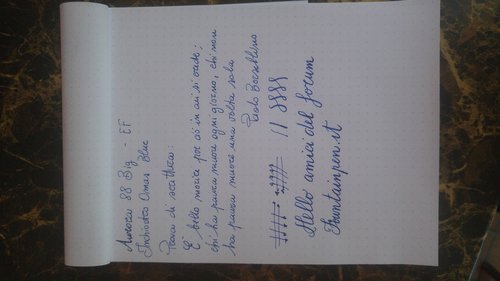 Aurora 88 Big - EF
Inchiostro Omas Blue
Prova di scrittura:
È bello morire per ciò in cui si crede;
chi ha paura muore ogni giorno, chi non
ha paura muore una volta sola
Paolo Borsellino
Hello amici del forum
Fountainpen.it